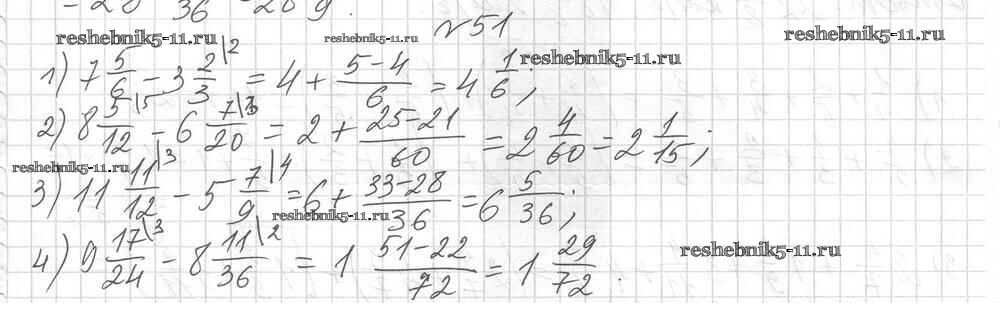 - 20 36 - 20 9.
reshebnik5-11.ru reshebnik5-11.ru №51 reshebnik5-11.ru
1) 7 5/6 - 3 2/3 \2 = 4 + (5-4)/6 = 4 1/6; reshebnik5-11.ru
2) 8 5/12 \5 - 6 7/20 \3 = 2 + (25-21)/60 = 2 4/60 = 2 1/15;
reshebnik5-11.ru
3) 11 11/12 \3 - 5 7/9 \4 = 6 + (33-28)/36 = 6 5/36;
reshebnik5-11.ru
4) 9 17/24 \3 - 8 11/36 \2 = 1 (51-22)/72 = 1 29/72. reshebnik5-11.ru